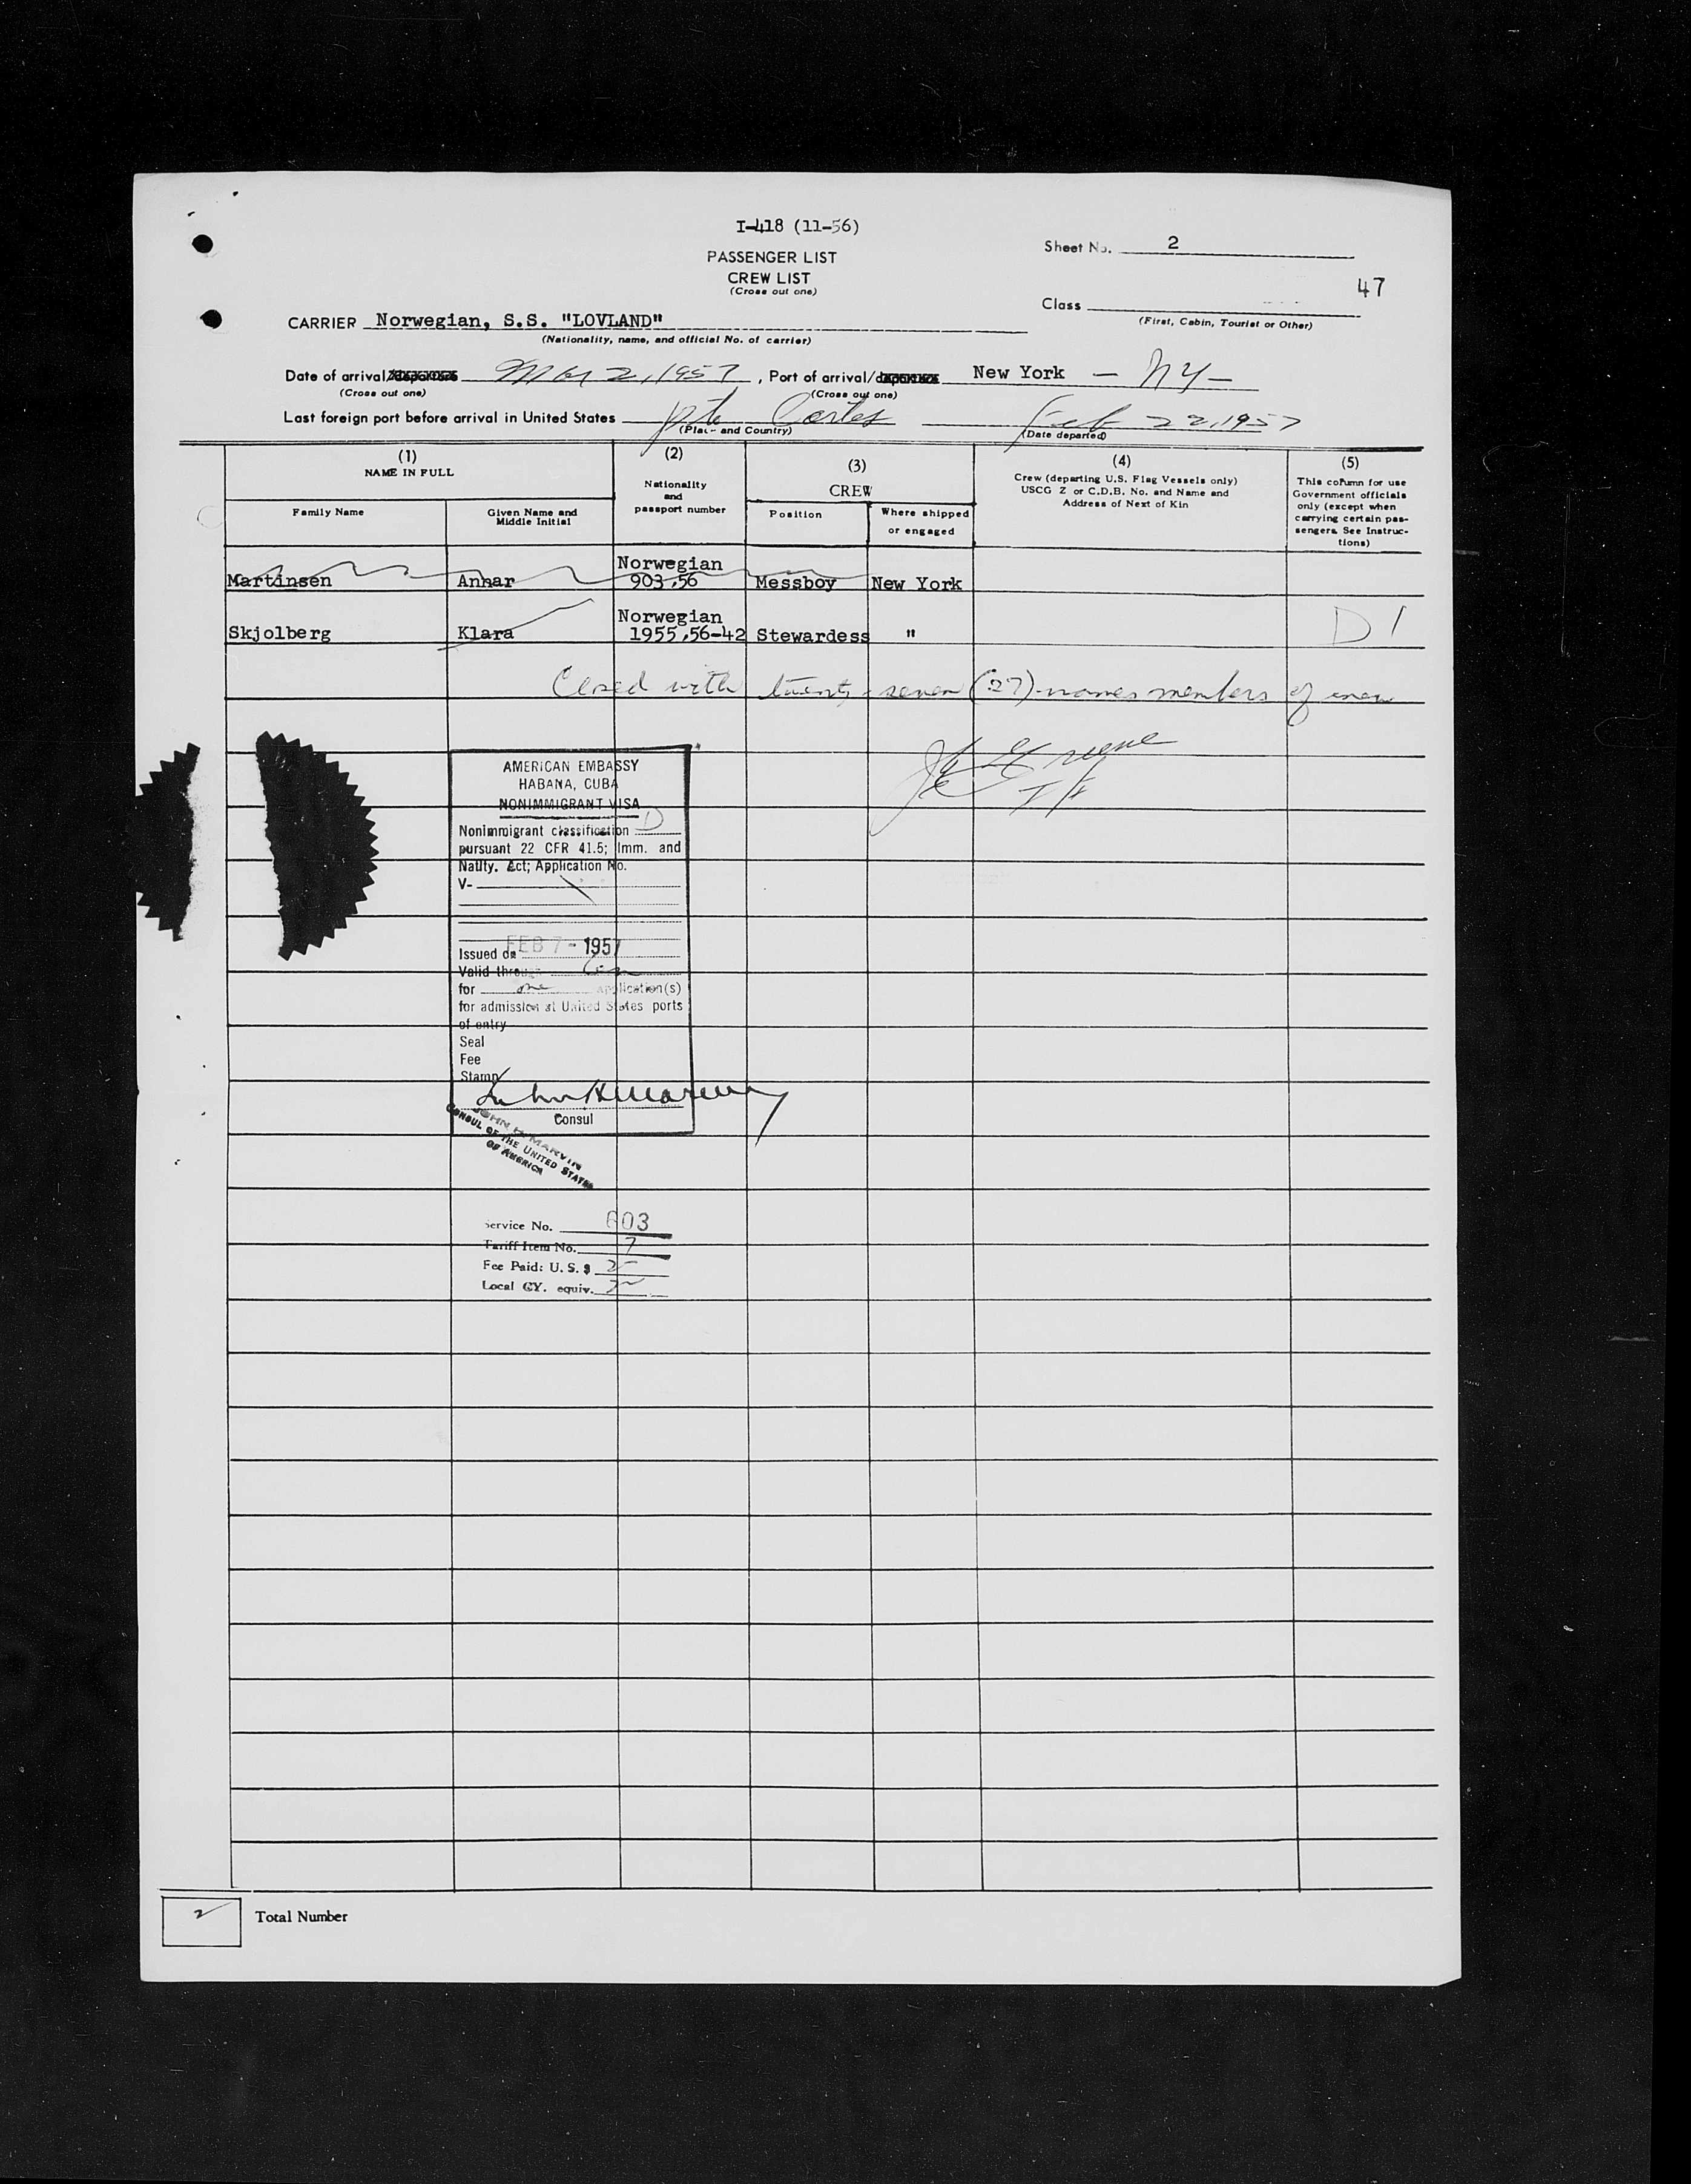 I-418 (11-56)
PASSENGER LIST
CREW LIST
(Cross out one)
Sheet No. 2
47
Class
(First, Cabin, Tourist or Other)
CARRIER Norwegian, S.S. "LOVLAND"
(Nationality, name, and official No. of carrier)
Date of arrival/departure Mar 2, 1957, Port of arrival/departure New York — NY —
(Cross out one) (Cross out one)
Last foreign port before arrival in United States Pto Cortes Feb 22, 1957
(Place and Country) (Date departed)
(1)
NAME IN FULL
Family Name
Given Name and
Middle Initial
(2)
Nationality
and
passport number
(3)
CREW
Position
Where shipped
or engaged
(4)
Crew (departing U.S. Flag Vessels only)
USCG Z or C.D.B. No. and Name and
Address of Next of Kin
(5)
This column for use
Government officials
only (except when
carrying certain pas-
sengers. See Instruc-
tions)
Norwegian
Martinsen Annar 903,56 Messboy New York
Norwegian
Skjolberg Klara 1955,56-42 Stewardess " D 1
Closed with twenty-seven (27) names members of crew
AMERICAN EMBASSY
HABANA, CUBA
NONIMMIGRANT VISA
Nonimmigrant classification D
pursuant 22 CFR 41.5; Imm. and
Natlty. Act; Application No.
V-
Issued on FEB 7 - 1957
Valid through
for one application(s)
for admission at United States ports
of entry
Seal
Fee
Stamp
John H Marvin
Consul
JOHN H. MARVIN
CONSUL OF THE UNITED STATES
OF AMERICA
Service No. 603
Tariff Item No. 7
Fee Paid: U.S. $ 2
Local CY. equiv. 2
2 Total Number